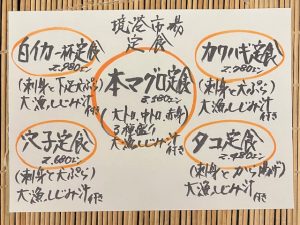 境港市場
定食
白イカ一杯定食
2,980エン
(刺身と下足天ぷら)
大漁しじみ汁付き
カワハギ定食
2,980エン
(刺身と天ぷら)
大漁しじみ汁付き
本マグロ定食
2,580エン
(大トロ、中トロ、赤身)
3種盛り
大漁しじみ汁付き
穴子定食
2,680エン
(刺身と天ぷら)
大漁しじみ汁付き
タコ定食
2,480エン
(刺身とから揚げ)
大漁しじみ汁付き